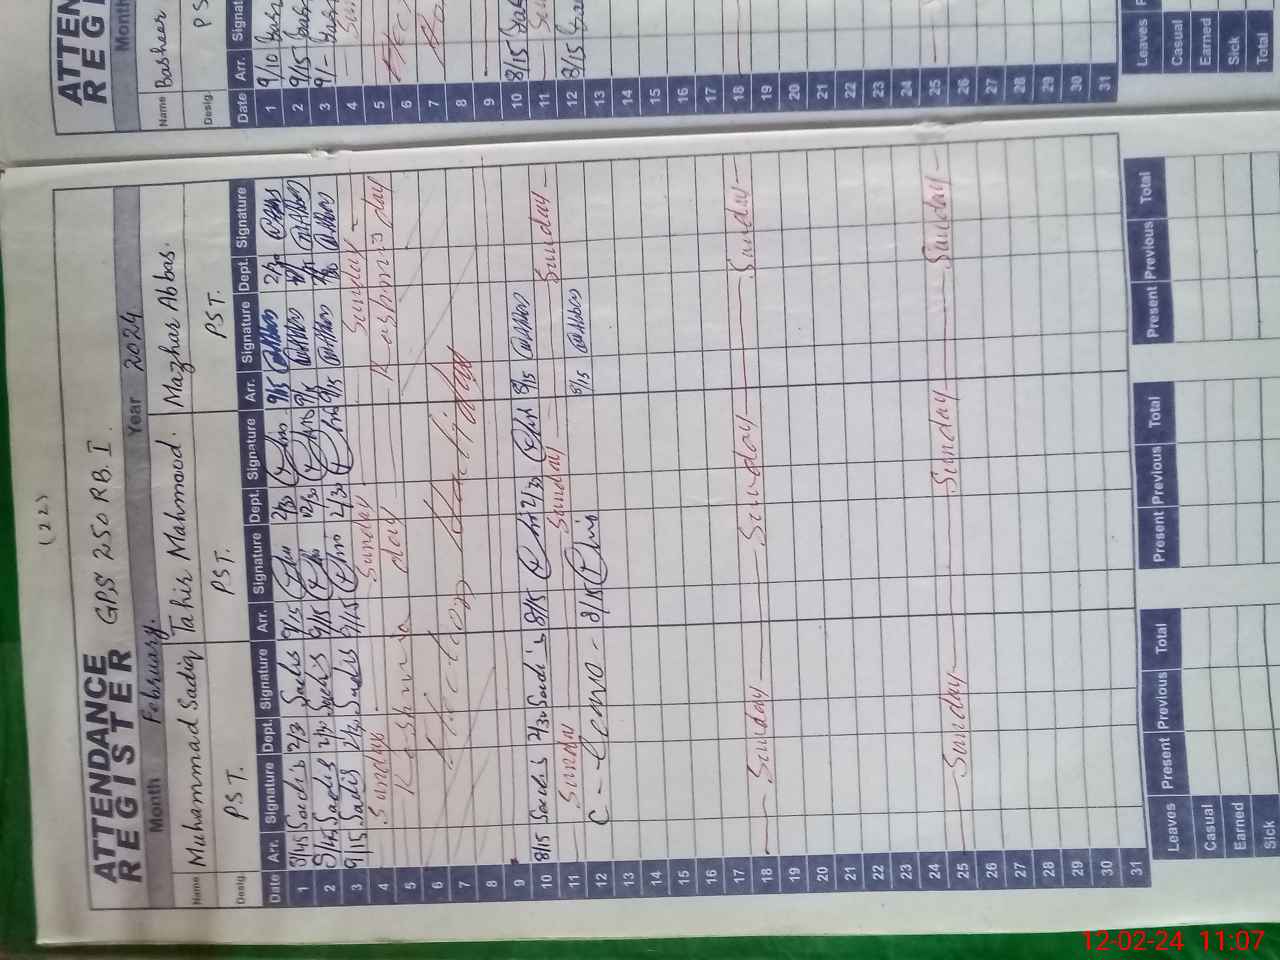 (22)
ATTENDANCE REGISTER GPS 250 RB. I
Month February. Year 2024
Name Muhammad Sadiq Tahir Mahmood. Mazhar Abbas.
Desig. PST. PST. PST.
Date Arr. Signature Dept. Signature Arr. Signature Dept. Signature Arr. Signature Dept. Signature
1 8/45 Sadis 2/30 Sadis 9/15 2/30 9/15
2 8/45 Sadis 2/30 Sadis 9/15 12/30 9/15
3 9/15 Sadis 2/30 Sadis 9/15 2/30 9/15
4 Sunday Sunday Sunday
5 Kashmir day Kashmir day
6 Election Holiday
7
8
9
10 8/15 Sadis 2/30 Sadis 8/15 2/30 8/15
11 Sunday Sunday Sunday
12 C - Leave - 8/15 8/15
13
14
15
16
17
18 Sunday Sunday Sunday
19
20
21
22
23
24
25 Sunday Sunday Sunday
26
27
28
29
30
31
Leaves Present Previous Total Present Previous Total Present Previous Total
Casual
Earned
Sick
ATTEN
REGI
Month
Name Basheer
Desig. PS
Date Arr. Signat
1 9/10
2 9/15
3 9/-
4
5
6
7
8
9
10 8/15
11
12 8/15
13
14
15
16
17
18
19
20
21
22
23
24
25
26
27
28
29
30
31
Leaves P
Casual
Earned
Sick
Total
12-02-24 11:07